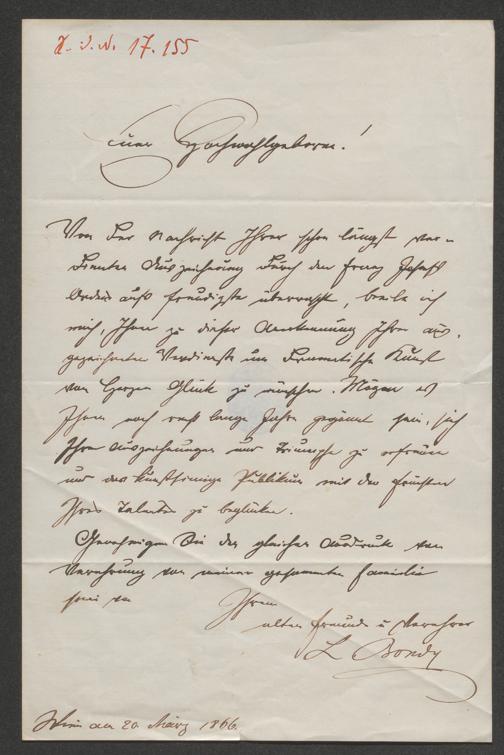 H. I. N. 17.155
Euer Hochwohlgeboren!
Von der Nachricht Ihrer schon längst ver-
dienten Auszeichnung durch den Franz Josefs
Orden aufs freudigste überrascht, beeile ich
mich, Ihnen zu dieser Anerkennung Ihrer aus-
gezeichneten Verdienste um dramatische Kunst
von Herzen Glück zu wünschen. Mögen es
Ihnen noch recht lange Jahre gegönnt sein, sich
Ihrer Auszeichnungen und Triumphe zu erfreuen
und das kunstsinnige Publikum mit den
Ihres Talentes zu beglücken.
Genehmigen Sie den gleichen Ausdruck von
Verehrung von meiner gesammten Familie
Ihrem
alten Freunde u Verehrer
L Bondy
Wien am 20 März 1866